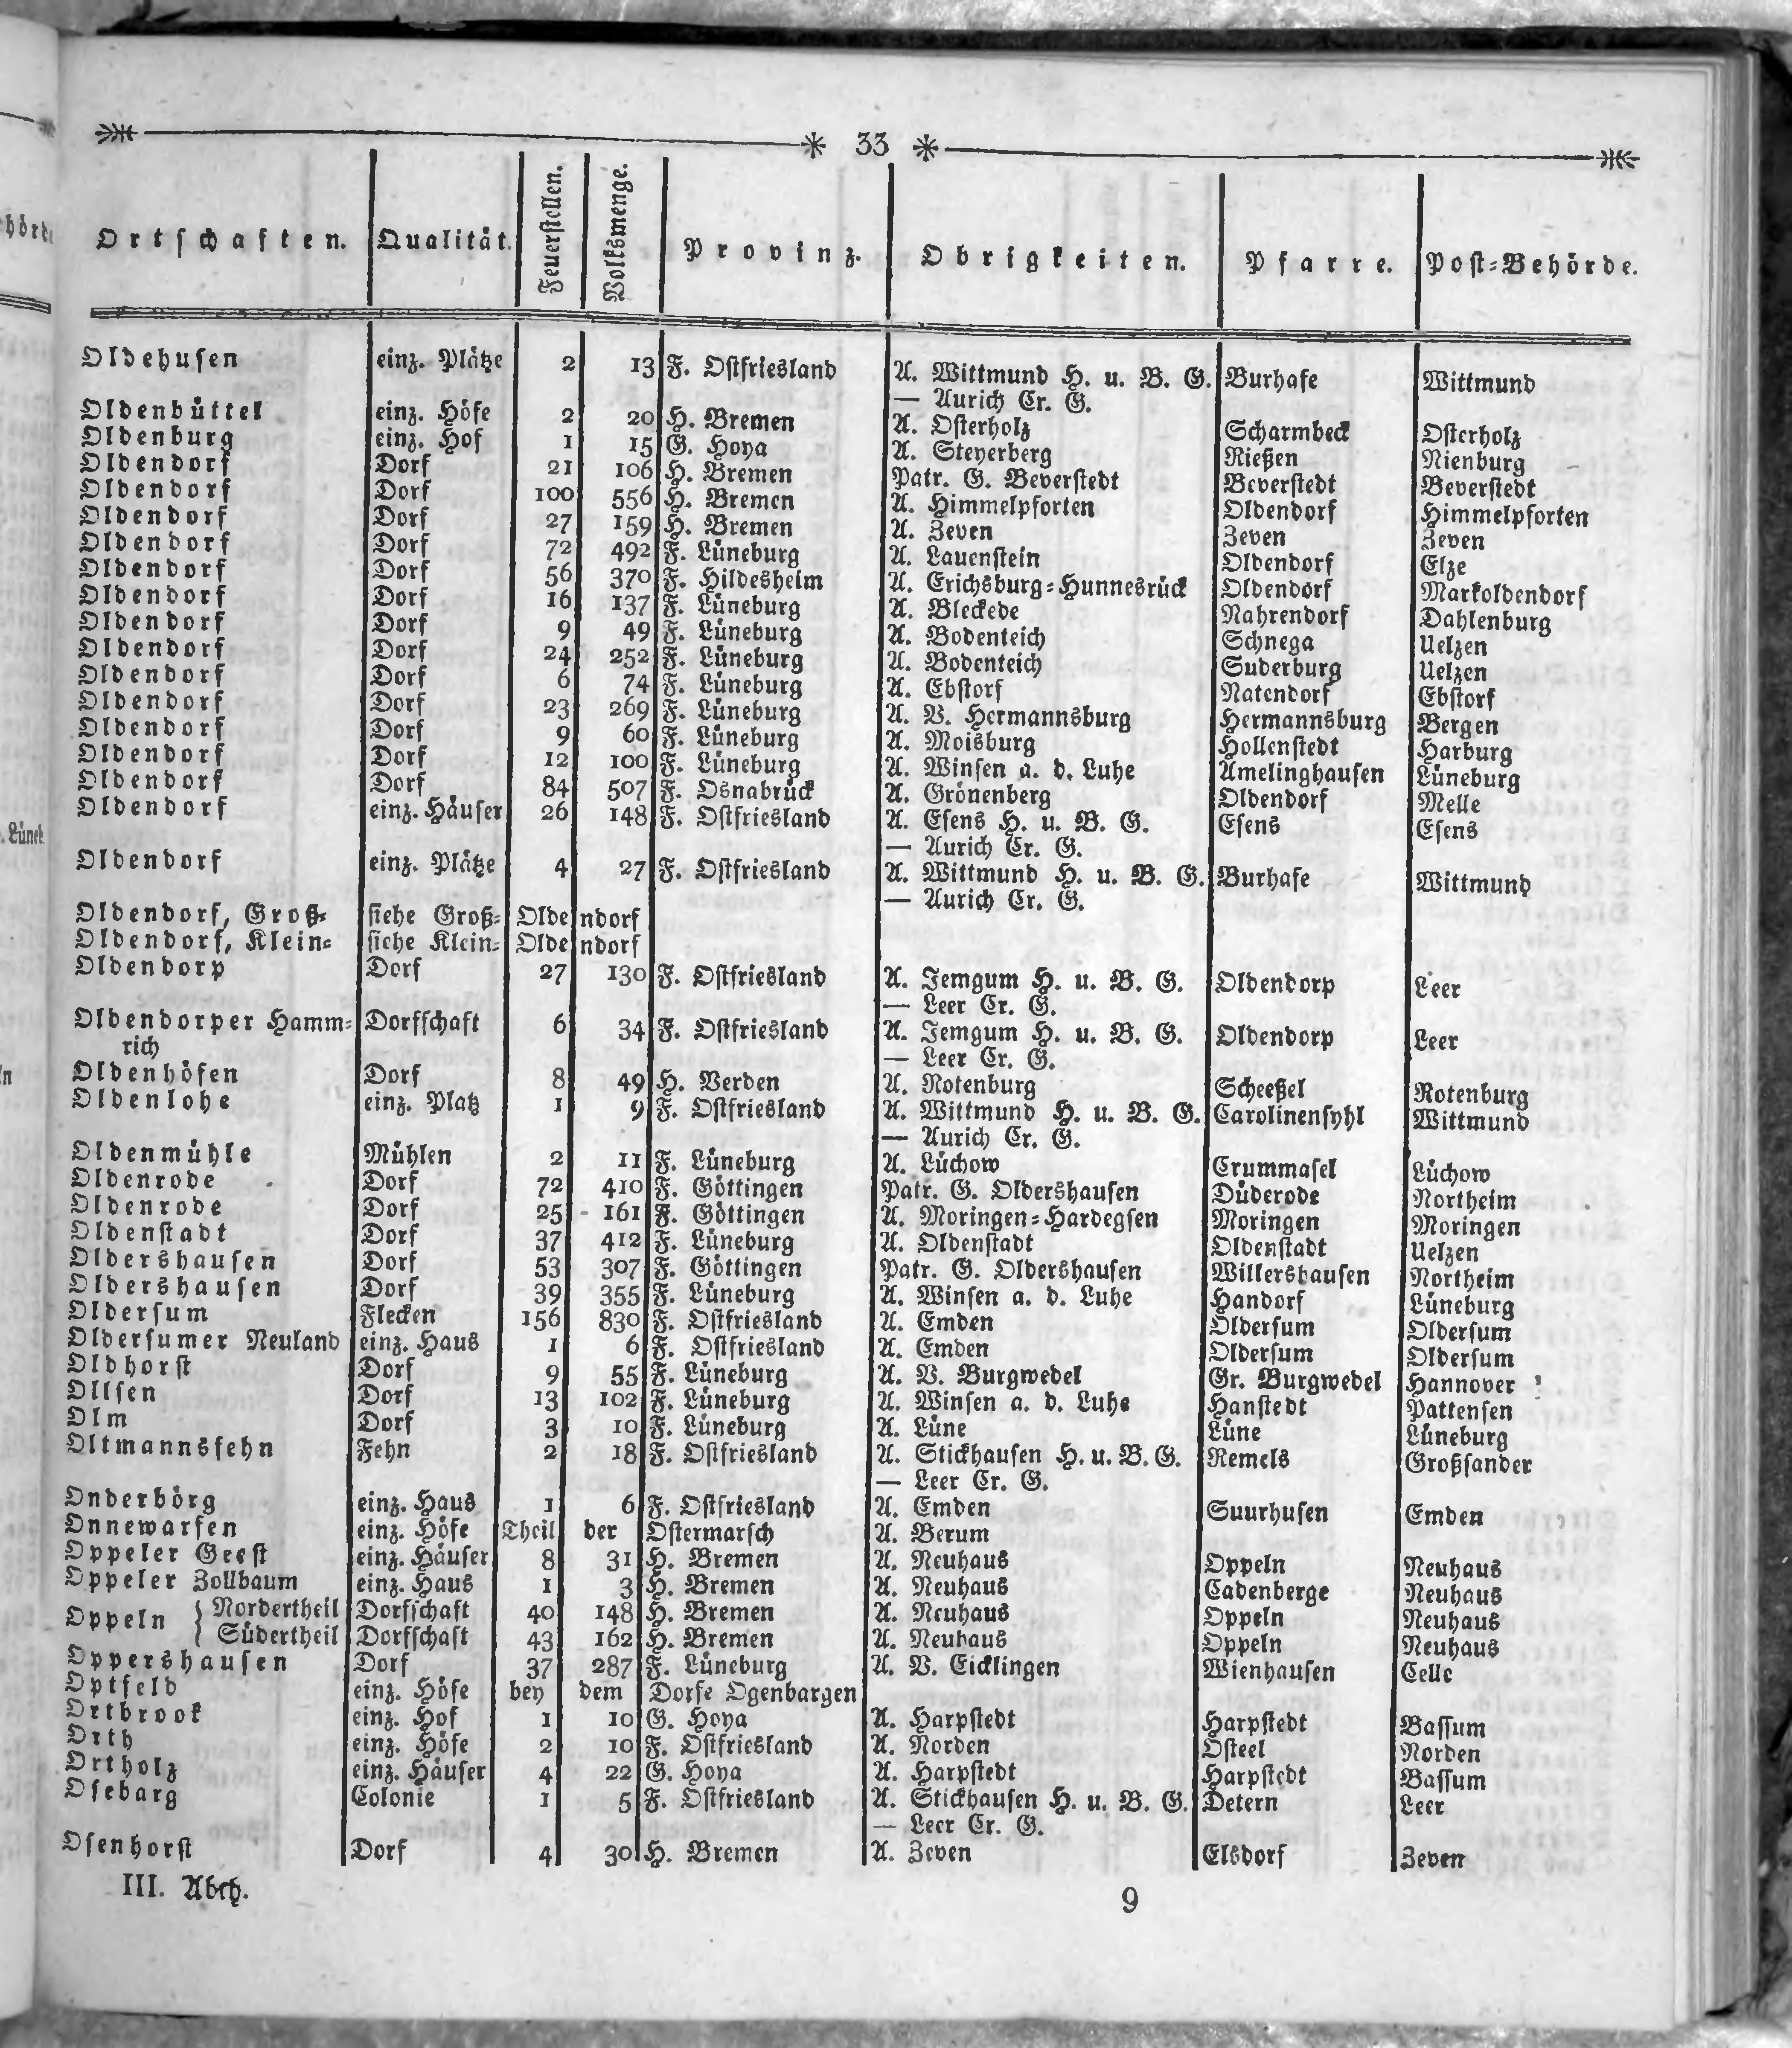 33
Ortschaften. Qualität. Feuerstellen. Volksmenge. Provinz. Obrigkeiten. Pfarre. Post=Behörde.
Oldehusen einz. Plätze 2 13 F. Ostfriesland A. Wittmund H. u. B. G. Burhafe Wittmund
— Aurich Cr. G.
Oldenbüttel einz. Höfe 2 20 H. Bremen A. Osterholz Scharmbeck Osterholz
Oldenburg einz. Hof 1 15 G. Hoya A. Steyerberg Nießen Nienburg
Oldendorf Dorf 21 106 H. Bremen Patr. G. Beverstedt Beverstedt Beverstedt
Oldendorf Dorf 100 556 H. Bremen A. Himmelpforten Oldendorf Himmelpforten
Oldendorf Dorf 27 159 H. Bremen A. Zeven Zeven Zeven
Oldendorf Dorf 72 492 F. Lüneburg A. Lauenstein Oldendorf Elze
Oldendorf Dorf 56 370 F. Hildesheim A. Erichsburg=Hunnesrück Oldendorf Markoldendorf
Oldendorf Dorf 16 137 F. Lüneburg A. Bleckede Nahrendorf Dahlenburg
Oldendorf Dorf 9 49 F. Lüneburg A. Bodenteich Schnega Uelzen
Oldendorf Dorf 24 252 F. Lüneburg A. Bodenteich Suderburg Uelzen
Oldendorf Dorf 6 74 F. Lüneburg A. Ebstorf Natendorf Ebstorf
Oldendorf Dorf 23 269 F. Lüneburg A. V. Hermannsburg Hermannsburg Bergen
Oldendorf Dorf 9 60 F. Lüneburg A. Moisburg Hollenstedt Harburg
Oldendorf Dorf 12 100 F. Lüneburg A. Winsen a. d. Luhe Amelinghausen Lüneburg
Oldendorf Dorf 84 507 F. Osnabrück A. Grönenberg Oldendorf Melle
Oldendorf einz. Häuser 26 148 F. Ostfriesland A. Esens H. u. B. G. Esens Esens
— Aurich Cr. G.
Oldendorf einz. Plätze 4 27 F. Ostfriesland A. Wittmund H. u. B. G. Burhafe Wittmund
— Aurich Cr. G.
Oldendorf, Groß= siehe Groß=Oldendorf
Oldendorf, Klein= siehe Klein=Oldendorf
Oldendorp Dorf 27 130 F. Ostfriesland A. Jemgum H. u. B. G. Oldendorp Leer
— Leer Cr. G.
Oldendorper Hamm= Dorfschaft 6 34 F. Ostfriesland A. Jemgum H. u. B. G. Oldendorp Leer
rich — Leer Cr. G.
Oldenhöfen Dorf 8 49 H. Verden A. Rotenburg Scheeßel Rotenburg
Oldenlohe einz. Platz 1 9 F. Ostfriesland A. Wittmund H. u. B. G. Carolinensyhl Wittmund
— Aurich Cr. G.
Oldenmühle Mühlen 2 11 F. Lüneburg A. Lüchow Crummasel Lüchow
Oldenrode Dorf 72 410 F. Göttingen Patr. G. Oldershausen Düderode Northeim
Oldenrode Dorf 25 161 F. Göttingen A. Moringen=Hardegsen Moringen Moringen
Oldenstadt Dorf 37 412 F. Lüneburg A. Oldenstadt Oldenstadt Uelzen
Oldershausen Dorf 53 307 F. Göttingen Patr. G. Oldershausen Willershausen Northeim
Oldershausen Dorf 39 355 F. Lüneburg A. Winsen a. d. Luhe Handorf Lüneburg
Oldersum Flecken 156 830 F. Ostfriesland A. Emden Oldersum Oldersum
Oldersumer Neuland einz. Haus 1 6 F. Ostfriesland A. Emden Oldersum Oldersum
Oldhorst Dorf 9 55 F. Lüneburg A. V. Burgwedel Gr. Burgwedel Hannover
Ollsen Dorf 13 102 F. Lüneburg A. Winsen a. d. Luhe Hanstedt Pattensen
Olm Dorf 3 10 F. Lüneburg A. Lüne Lüne Lüneburg
Oltmannsfehn Fehn 2 18 F. Ostfriesland A. Stickhausen H. u. B. G. Remels Großsander
— Leer Cr. G.
Onderbörg einz. Haus 1 6 F. Ostfriesland A. Emden Suurhusen Emden
Onnewarfen einz. Höfe Theil der Ostermarsch A. Berum
Oppeler Geest einz. Häuser 8 31 H. Bremen A. Neuhaus Oppeln Neuhaus
Oppeler Zollbaum einz. Haus 1 3 H. Bremen A. Neuhaus Cadenberge Neuhaus
Oppeln { Nordertheil Dorfschaft 40 148 H. Bremen A. Neuhaus Oppeln Neuhaus
Südertheil Dorfschaft 43 162 H. Bremen A. Neuhaus Oppeln Neuhaus
Oppershausen Dorf 37 287 F. Lüneburg A. V. Eicklingen Wienhausen Celle
Optfeld einz. Höfe bey dem Dorfe Ogenbargen
Ortbrook einz. Hof 1 10 G. Hoya A. Harpstedt Harpstedt Bassum
Orth einz. Höfe 2 10 F. Ostfriesland A. Norden Osteel Norden
Ortholz einz. Häuser 4 22 G. Hoya A. Harpstedt Harpstedt Bassum
Osebarg Colonie 1 5 F. Ostfriesland A. Stickhausen H. u. B. G. Detern Leer
— Leer Cr. G.
Osenhorst Dorf 4 30 H. Bremen A. Zeven Elsdorf Zeven
III. Abth. 9